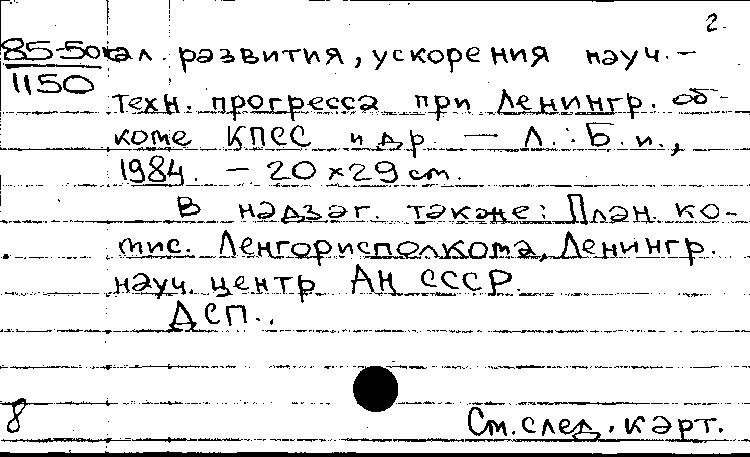 2.
85-50 кал. развития, ускорения науч.-
1150
техн. прогресса при Ленингр. об-
коме КПСС и др. — Л. : Б. и.,
1984. — 20 х 29 см.
В надзаг. также: План. ко-
мис. Ленгорисполкома, Ленингр.
науч. центр АН СССР.
ДСП..
8
См. след. карт.